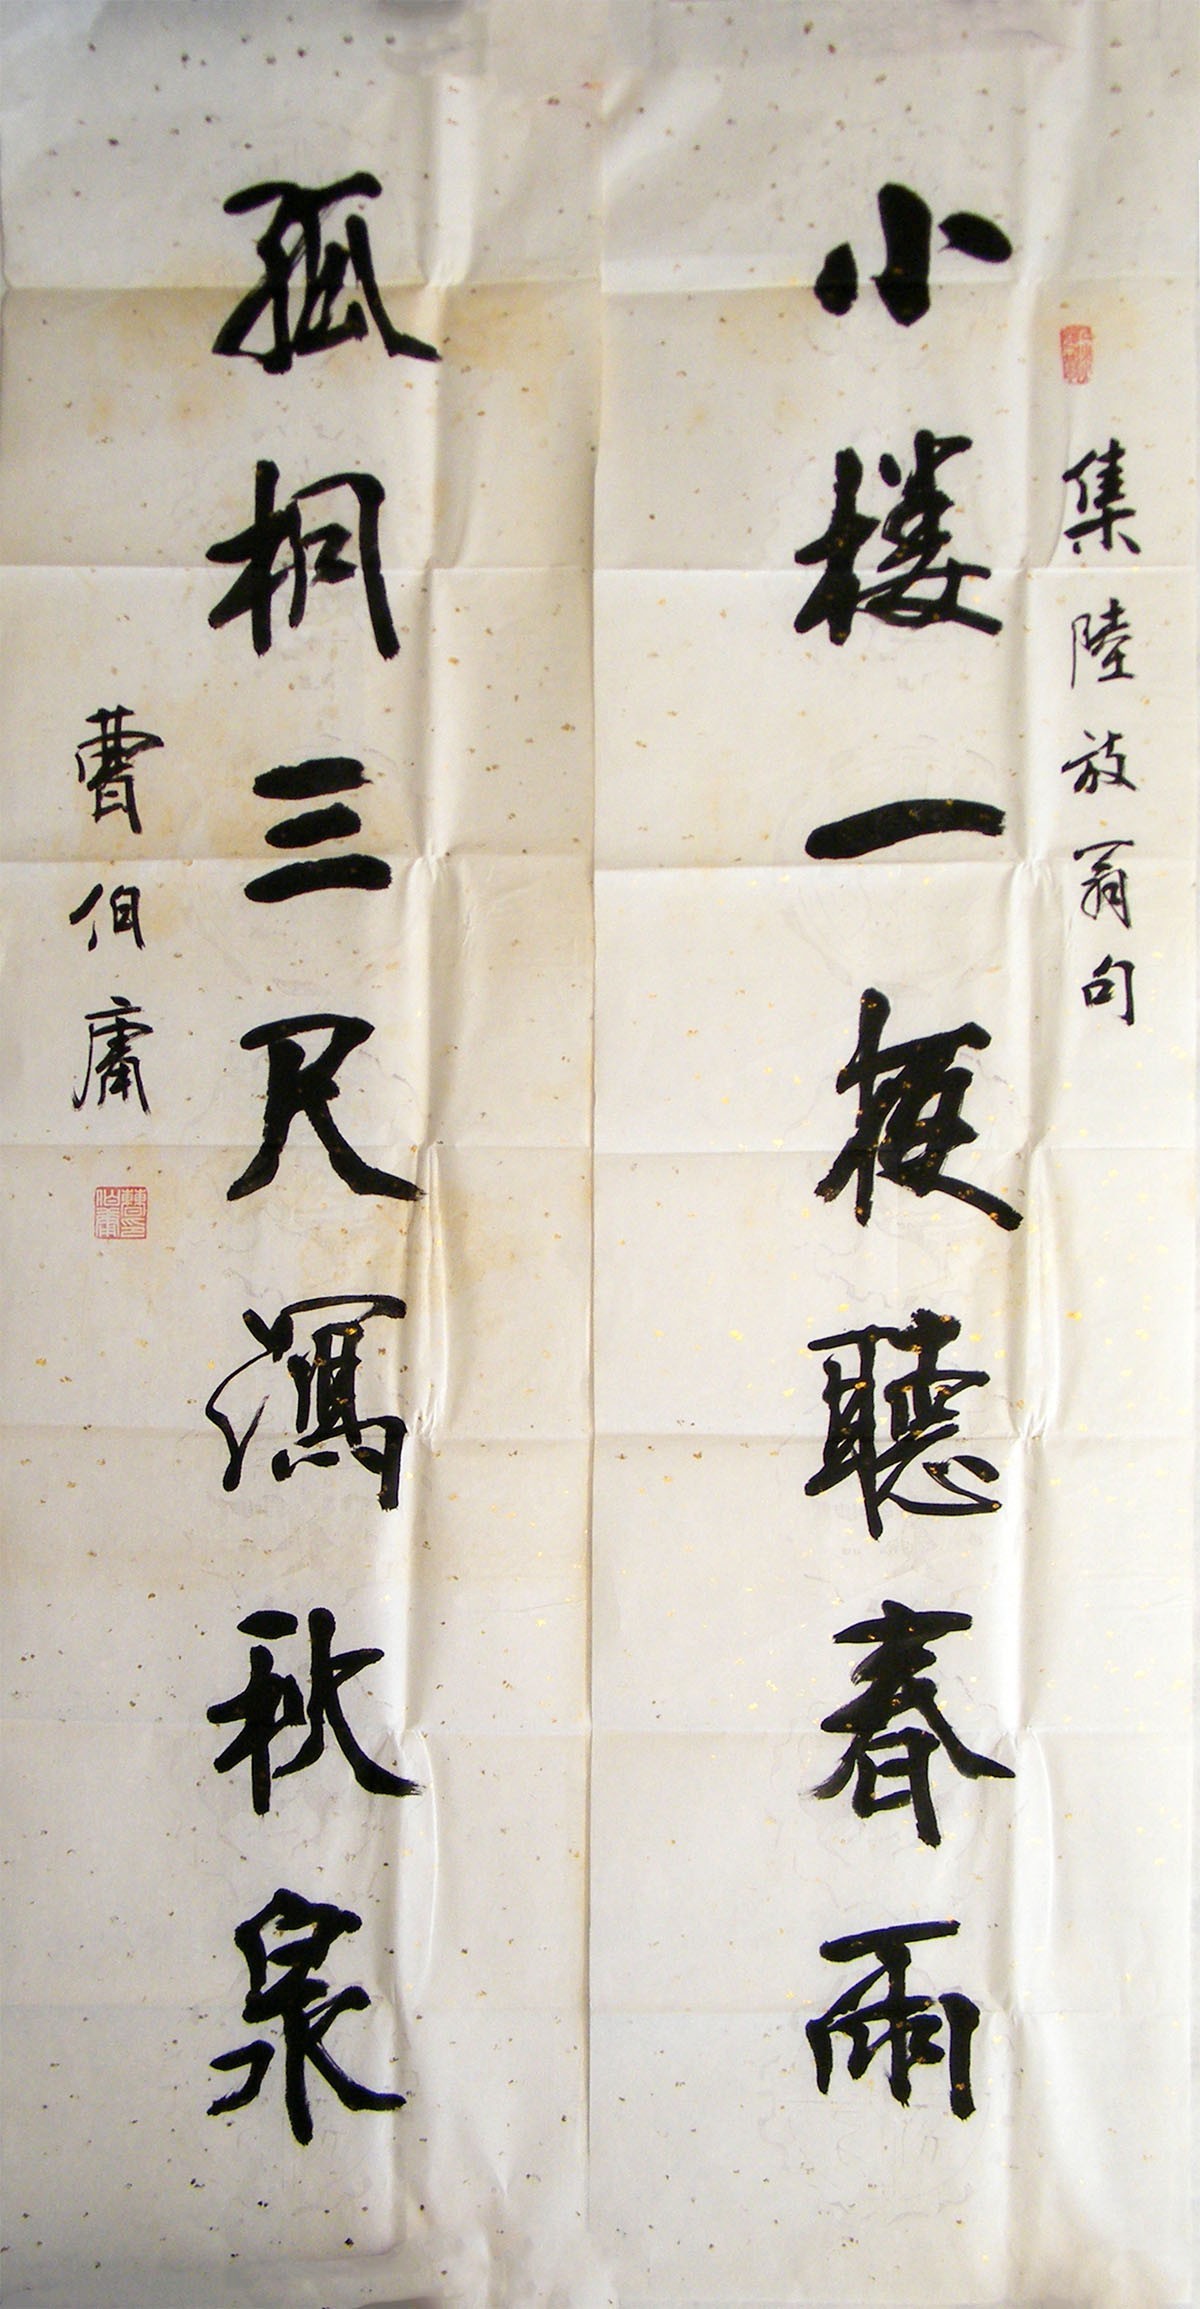 集陸放翁句
小楼一夜聽春雨
孤桐三尺瀉秋泉
曹伯庸
曹印伯庸